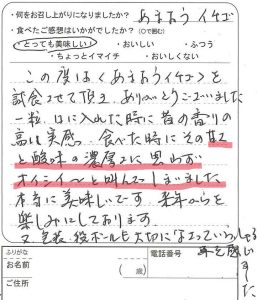 ・何をお召し上がりになりましたか？ あまおうイチゴ
・食べたご感想はいかがでしたか？（○で囲む）
・とっても美味しい！ ・おいしい ・ふつう
・ちょっとイマイチ ・おいしくない
この度は＜あまおうイチゴ＞を
試食させて頂き、ありがとうございました
一粒、口に入れた時に昔の香りの
高い実感、食べた時にその甘さ
と酸味の濃厚さに思わず
オイシイ〜と叫んでしまいました
本当に美味しいです 来年からを
楽しみにしております
又、包装、段ボールも大切になさっていらっしゃる
事を感じました
ふりがな
お名前 （ 歳） 電話番号
ご住所